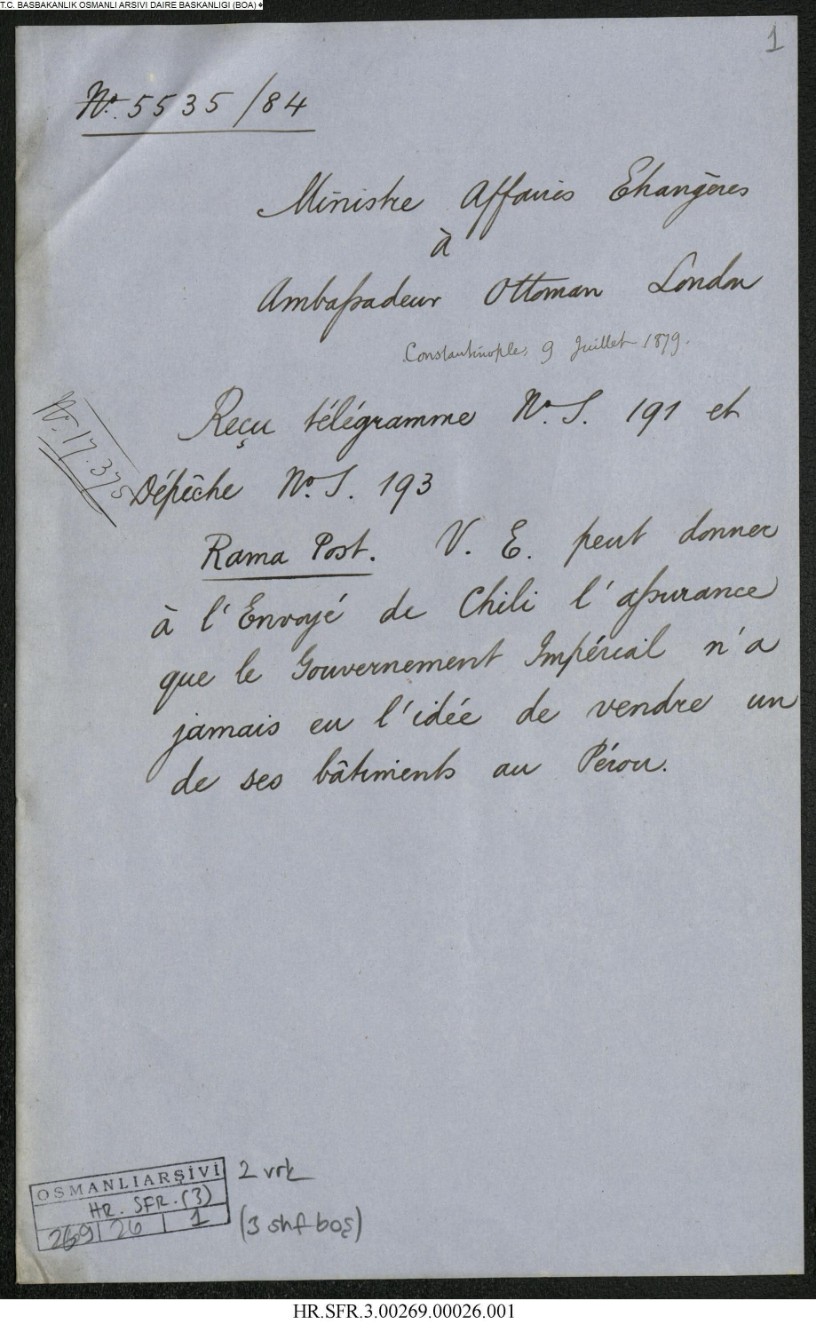 T.C. BASBAKANLIK OSMANLI ARSIVI DAIRE BASKANLIGI (BOA)
1
No. 5535/84
Ministre Affaires Etrangères
à
Ambassadeur Ottoman London
Constantinople, 9 Juillet 1879.
No. 17.375
Reçu télégramme No. S. 191 et
Dépêche No. S. 193
Rama Post. V. E. peut donner
à l'Envoyé de Chili l'assurance
que le Gouvernement Impérial n'a
jamais eu l'idée de vendre un
de ses bâtiments au Pérou.
OSMANLI ARŞİVİ
HR. SFR. (3)
269 | 26 | 1
2 vrk
(3 shf boş)
HR.SFR.3.00269.00026.001